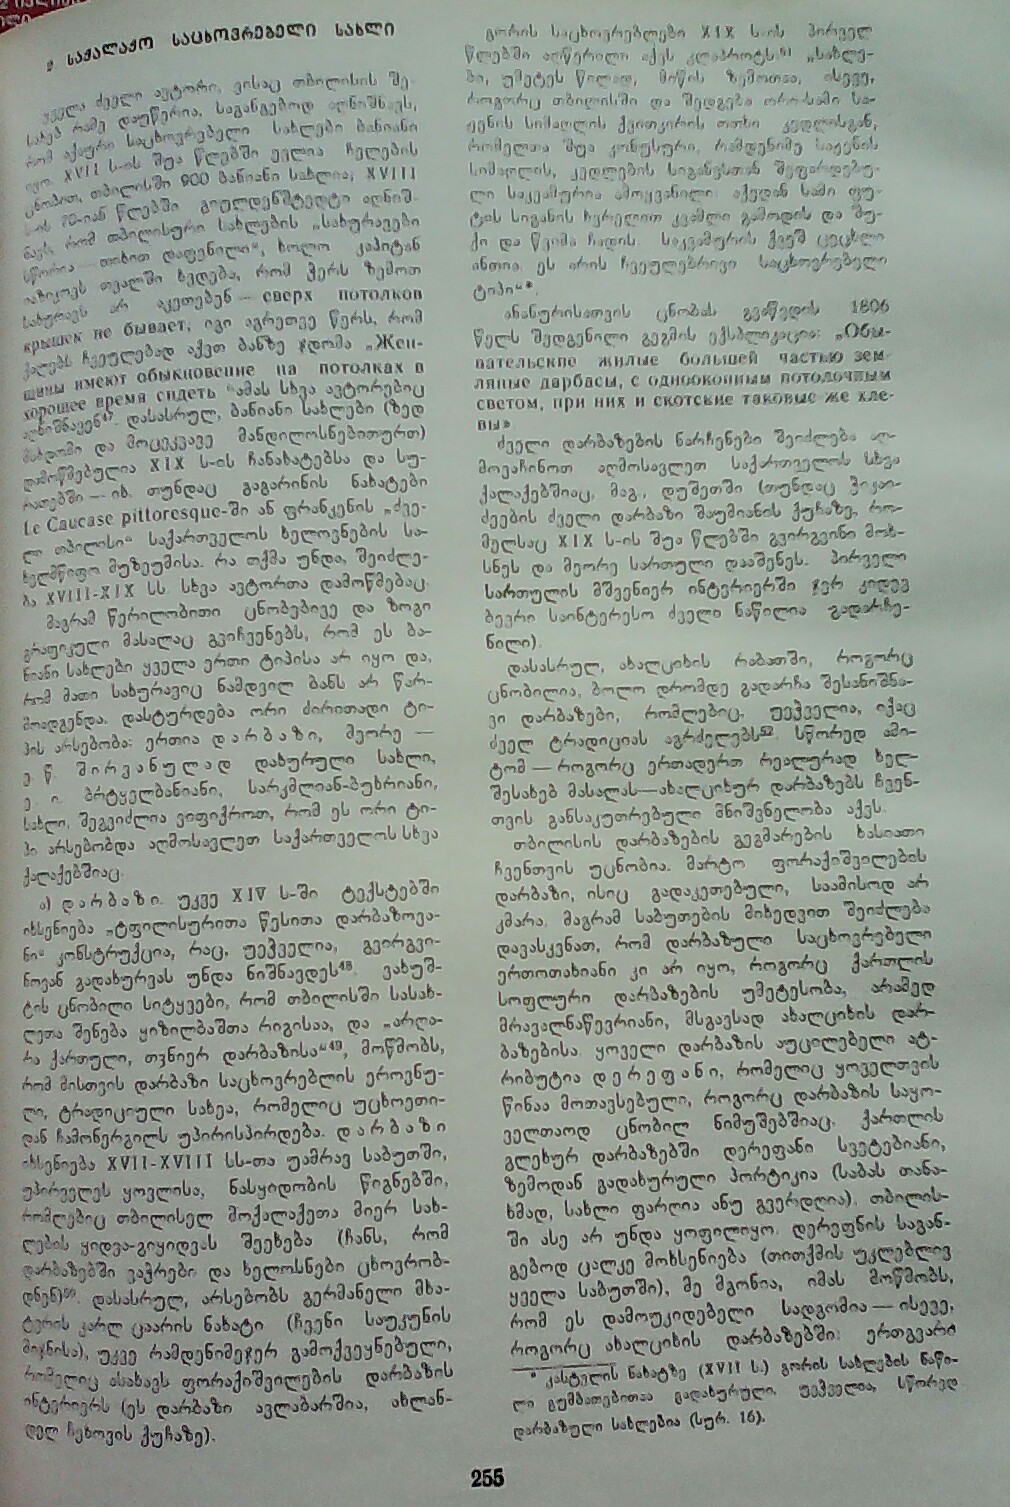 2. საქალაქო საცხოვრებელი სახლი
ყველა ძველი ავტორი, ვისაც თბილისის შე-
სახებ რამე დაუწერია, საგანგებოდ აღნიშნავს,
რომ აქაური საცხოვრებელი სახლები ბანიანი
იყო. XVII ს-ის შუა წლებში ევლია ჩელების
ცნობით, თბილისში 600 ბანიანი სახლია; XVIII
ს-ის 70-იან წლებში გიულდენშტედტი აღნიშ-
ნავს, რომ თბილისური სახლების „სახურავები
სწორია — თიხით დაფენილი“, ხოლო კაპიტან
იაზიკოვს თვალში ხვდება, რომ ჭერს ზემოთ
სახურავს არ აკეთებენ — сверх потолков
крышек не бывает; იგი აგრეთვე წერს, რომ
ქალებს ჩვეულებად აქვთ ბანზე ჯდომა „Жен-
щины имеют обыкновение на потолках в
хорошее время сидеть“ ამას სხვა ავტორებიც
აღნიშნავენ⁴⁷. დასასრულ, ბანიანი სახლები (ზედ
მსხდომი და მოცეკვავე მანდილოსნებითურთ)
დამოწმებულია XIX ს-ის ჩანახატებსა და სუ-
რათებში — იხ. თუნდაც გაგარინის ნახატები
Le Caucase pittoresque-ში ან ფრანკენის „ძვე-
ლი თბილისი“ საქართველოს ხელოვნების სა-
ხელმწიფო მუზეუმისა. რა თქმა უნდა, შეიძლე-
ბა XVIII-XIX სს. სხვა ავტორთა დამოწმებაც.
მაგრამ წერილობითი ცნობებივე და ზოგი
გრაფიკული მასალაც გვიჩვენებს, რომ ეს ბა-
ნიანი სახლები ყველა ერთი ტიპისა არ იყო და,
რომ მათი სახურავიც ნამდვილ ბანს არ წარ-
მოადგენდა. დასტურდება ორი ძირითადი ტი-
პის არსებობა: ერთია დარბაზი, მეორე —
ე. წ. შირვანულად დახურული სახლი,
ე. ი. ბრტყელბანიანი, სარკმლიან-ბუხრიანი,
სახლი. შეგვიძლია ვიფიქროთ, რომ ეს ორი ტი-
პი არსებობდა აღმოსავლეთ საქართველოს სხვა
ქალაქებშიაც.
ა) დარბაზი. უკვე XIV ს-ში ტექსტებში
იხსენიება „ტფილისურითა წესითა დარბაზოვა-
ნი“ კონსტრუქცია, რაც, უეჭველია, გვირგვი-
ნოვან გადახურვას უნდა ნიშნავდეს⁴⁸. ვახუშ-
ტის ცნობილი სიტყვები, რომ თბილისში სასახ-
ლეთა შენება ყიზილბაშთა რიგისაა, და „არღა-
რა ქართული, თჳნიერ დარბაზისა“⁴⁹, მოწმობს,
რომ მისთვის დარბაზი საცხოვრებლის ეროვნუ-
ლი, ტრადიციული სახეა, რომელიც უცხოეთი-
დან ჩამონერგილს უპირისპირდება. დარბაზი
იხსენიება XVII-XVIII სს-თა უამრავ საბუთში,
უპირველეს ყოვლისა, ნასყიდობის წიგნებში,
რომლებიც თბილისელ მოქალაქეთა მიერ სახ-
ლების ყიდვა-გიყიდვას შეეხება (ჩანს, რომ
დარბაზებში ვაჭრები და ხელოსნები ცხოვრობ-
დნენ)⁵⁰. დასასრულ, არსებობს გერმანელი მხა-
ტვრის კარლ ცაარის ნახატი (ჩვენი საუკუნის
მიჯნისა), უკვე რამდენიმეჯერ გამოქვეყნებული,
რომელიც ასახავს ფორაქიშვილების დარბაზის
ინტერიერს (ეს დარბაზი ავლაბარშია, ახლან-
დელ ჩეხოვის ქუჩაზე).
გორის საცხოვრებლები XIX ს-ის პირველ
წლებში აღწერილი აქვს კლაპროტს:⁵¹ „სახლე-
ბი, უმეტეს წილად, მიწის ზემოთაა, ისევე,
როგორც თბილისში და შედგება ორი-სამი სა-
ჟენის სიმაღლის ქვითკირის ოთხი კედლისგან,
რომელთა შუა კონუსური, რამდენიმე საჟენის
სიმაღლის, კედლების სიგანესთან შეფარდებუ-
ლი საკვამურია ამოყვანილი: აქედან სამი ფუ-
ტის სიგანის ხვრელით კვამლი გამოდის და შუ-
ქი და წვიმა ჩადის. საკვამურის ქვეშ ცეცხლი
ანთია. ეს არის ჩვეულებრივი საცხოვრებელი
ტიპი“*.
ანანურისათვის ცნობას გვაწვდის 1806
წელს შედგენილი გეგმის ექსპლიკაცია: „Обы-
вательские жилые большей частью зем-
ляные дарбасы, с однооконным потолочным
светом, при них и скотские таковые же хле-
вы».
ძველი დარბაზების ნარჩენები შეიძლება აღ-
მოვაჩინოთ აღმოსავლეთ საქართველოს სხვა
ქალაქებშიაც, მაგ., დუშეთში (თუნდაც ჭიკაი-
ძეების ძველი დარბაზი შაუმიანის ქუჩაზე, რო-
მელსაც XIX ს-ის შუა წლებში გვირგვინი მოხ-
სნეს და მეორე სართული დააშენეს. პირველი
სართულის მშვენიერ ინტერიერში ჯერ კიდევ
ბევრი საინტერესო ძველი ნაწილია გადარჩე-
ნილი).
დასასრულ, ახალციხის რაბათში, როგორც
ცნობილია, ბოლო დრომდე გადარჩა შესანიშნა-
ვი დარბაზები, რომლებიც, უეჭველია, იქაც
ძველ ტრადიციას აგრძელებს⁵². სწორედ ამი-
ტომ — როგორც ერთადერთ რეალურად ხელ-
შესახებ მასალას—ახალციხურ დარბაზებს ჩვენ-
თვის განსაკუთრებული მნიშვნელობა აქვს.
თბილისის დარბაზების გეგმარების ხასიათი
ჩვენთვის უცნობია. მარტო ფორაქიშვილების
დარბაზი, ისიც გადაკეთებული, საამისოდ არ
კმარა. მაგრამ საბუთების მიხედვით შეიძლება
დავასკვნათ, რომ დარბაზული საცხოვრებელი
ერთოთახიანი კი არ იყო, როგორც ქართლის
სოფლური დარბაზების უმეტესობა, არამედ
მრავალნაწევრიანი, მსგავსად ახალციხის დარ-
ბაზებისა. ყოველი დარბაზის აუცილებელი ატ-
რიბუტია დერეფანი, რომელიც ყოველთვის
წინაა მოთავსებული, როგორც დარბაზის საყო-
ველთაოდ ცნობილ ნიმუშებშიაც. ქართლის
გლეხურ დარბაზებში დერეფანი სვეტებიანი,
ზემოდან გადახურული პორტიკია (საბას თანა-
ხმად, სახლი ფარღია ანუ გვერდღია). თბილის-
ში ასე არ უნდა ყოფილიყო. დერეფნის საგან-
გებოდ ცალკე მოხსენიება (თითქმის უკლებლივ
ყველა საბუთში), მე მგონია, იმას მოწმობს,
რომ ეს დამოუკიდებელი სადგომია — ისევე,
როგორც ახალციხის დარბაზებში: ერთგვარი
* კასტელის ნახატზე (XVII ს.) გორის სახლების ნაწი-
ლი გუმბათებითაა გადახურული, უეჭველია, სწორედ
დარბაზული სახლებია (სურ. 16).
255